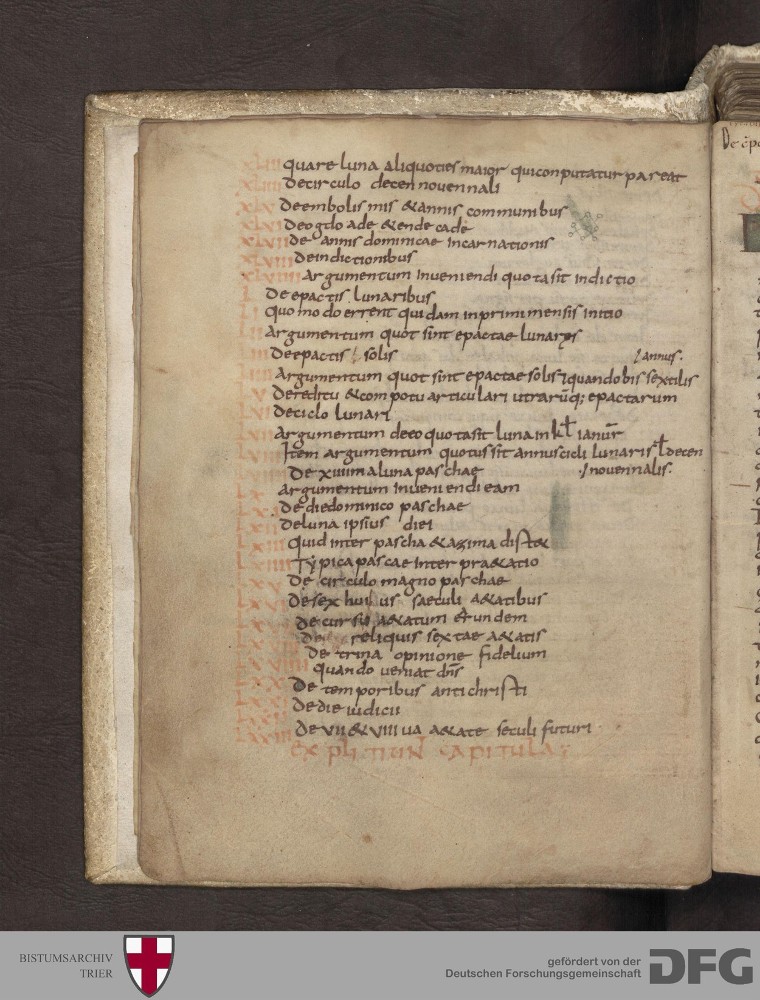 XLIII quare luna aliquoties maior qui conputatur pareat
XLIIII De circulo decennovennali
XLV De embolismis & annis communibus
XLVI De ogdoade & endecade
XLVII De annis dominicae incarnationis
XLVIII De indictionibus
XLVIIII Argumentum inveniendi quota sit indictio
L De epactis lunaribus
LI quomodo errent quidam in primi mensis initio
LII Argumentum quot sint epactae lunares
LIII De epactis solis
/ annus.
LIIII Argumentum quot sint epactae solis & quando bissextilis
LV De reditu & compotu articulari utrarumq; epactarum
LVI De ciclo lunari
Argumentum de eo quota sit luna in kł ianuar̄
Item argumentum quotus sit annus cicli lunaris ł decen
novennalis.
De xiiii luna paschae
Argumentum inveniendi eam
De die dominico paschae
De luna ipsius diei
LXIII Quid inter pascha & azima distet
LXIIII Typica pascae interpraetatio
LXV De circulo magno paschae
De sex huius saeculi aetatibus
De cursu aetatum
De reliquis sextae aetatis
De trina opinione fidelium
quando veniat dn̄s
De temporibus antichristi
De die iudicii
De vii & viiii aetate seculi futuri
expliciunt capitula
De
BISTUMSARCHIV
TRIER
gefördert von der
Deutschen Forschungsgemeinschaft
DFG